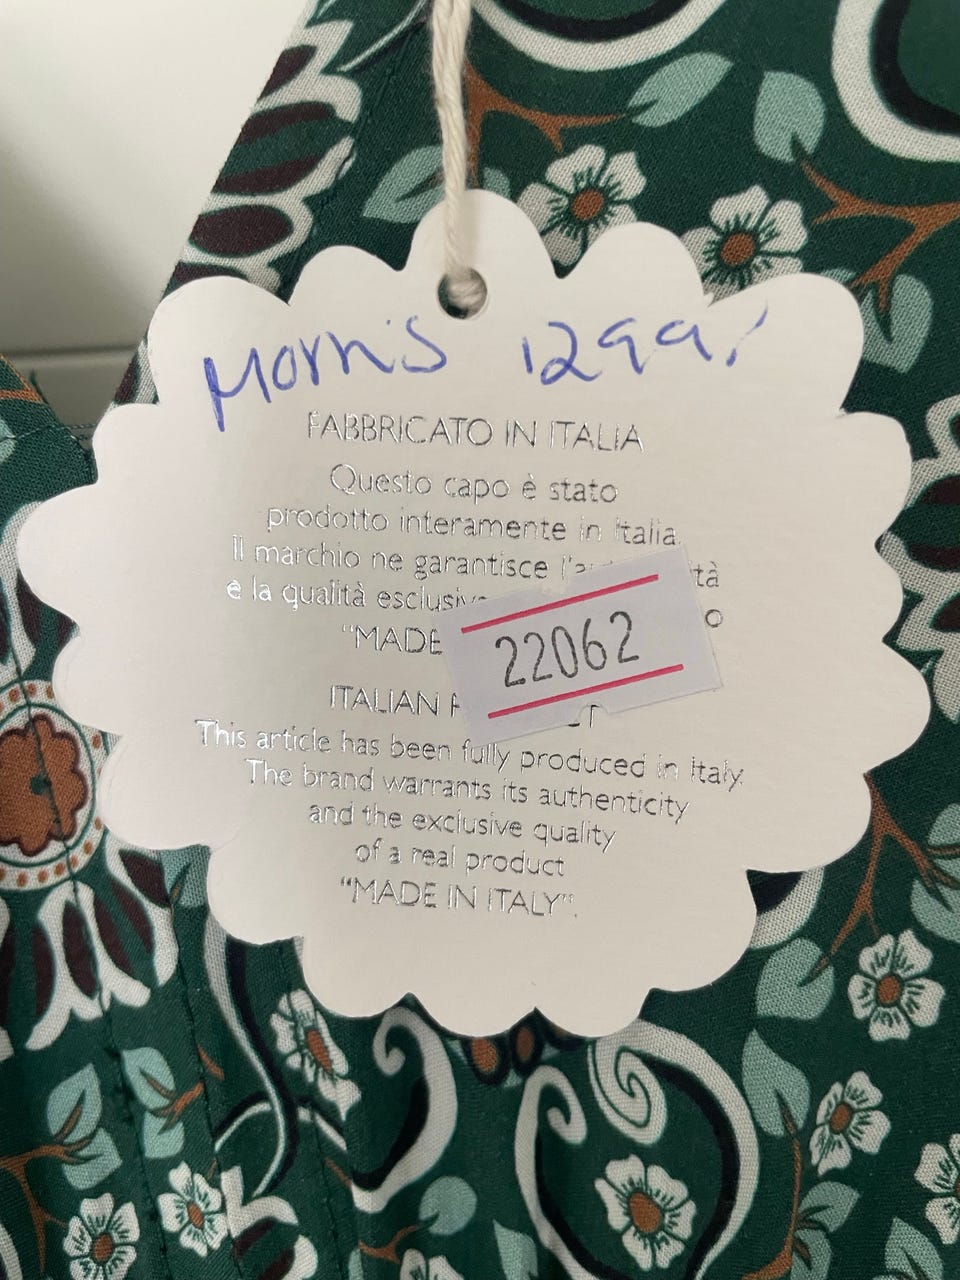 Morris 1299,
FABBRICATO IN ITALIA
Questo capo è stato
prodotto interamente in Italia.
Il marchio ne garantisce
e la qualità
"MADE
22062
ITALIAN
This article has been fully produced in Italy.
The brand warrants its authenticity
and the exclusive quality
of a real product
"MADE IN ITALY".